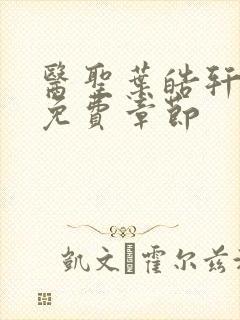 醫聖葉皓軒
免費章節
凱文·霍尔兹